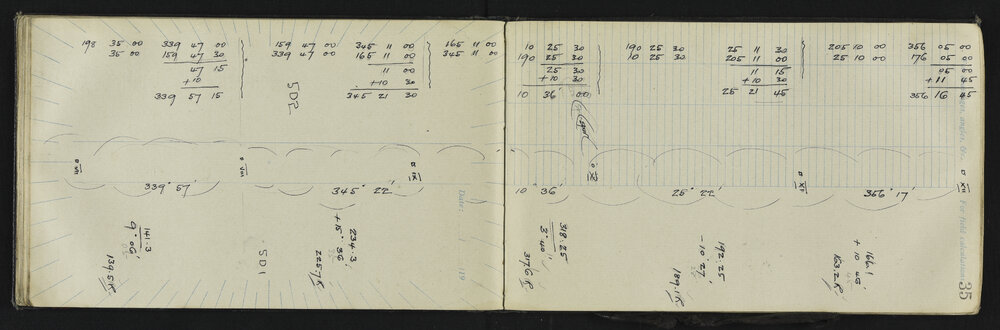 198 35 00 339 47 00 159 47 00 345 11 00 165 11 00
35 00 159 47 00 339 47 00 165 11 00 345 11 00
47 15 11 00
+10 +10 30
339 57 15 345 21 30
SD2
339° 57' 345° 22'
VIII
XI
SD1
141.3
9° 06'
139.5R
234.3
+ 15° 36
225.7R
Date: 19
10 25 30 190 25 30 25 11 30 205 10 00 356 05 00
190 25 30 10 25 30 205 11 00 25 10 00 176 05 00
25 30 11 15 05 00
+10 30 +10 30 +11 45
10 36 00 25 21 45 356 16 45
spur
10 36' 25° 22' 356° 17'
IX
XI
XII
318.25
3° 40'
317.6R
192.25
-10° 27'
189.1R
166.1
+ 10
163.2R
For field calculations
35